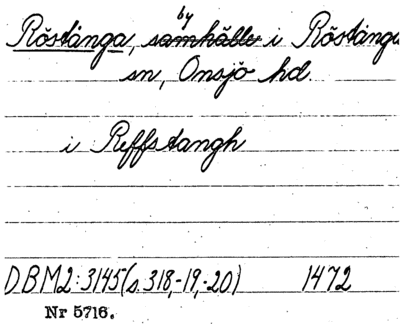 by
Röstånga, samhälle i Röstånga
sn, Onsjö hd.
i Reffstangh
DBM2:3145(s.318,-19,-20) 1472
Nr 5716.